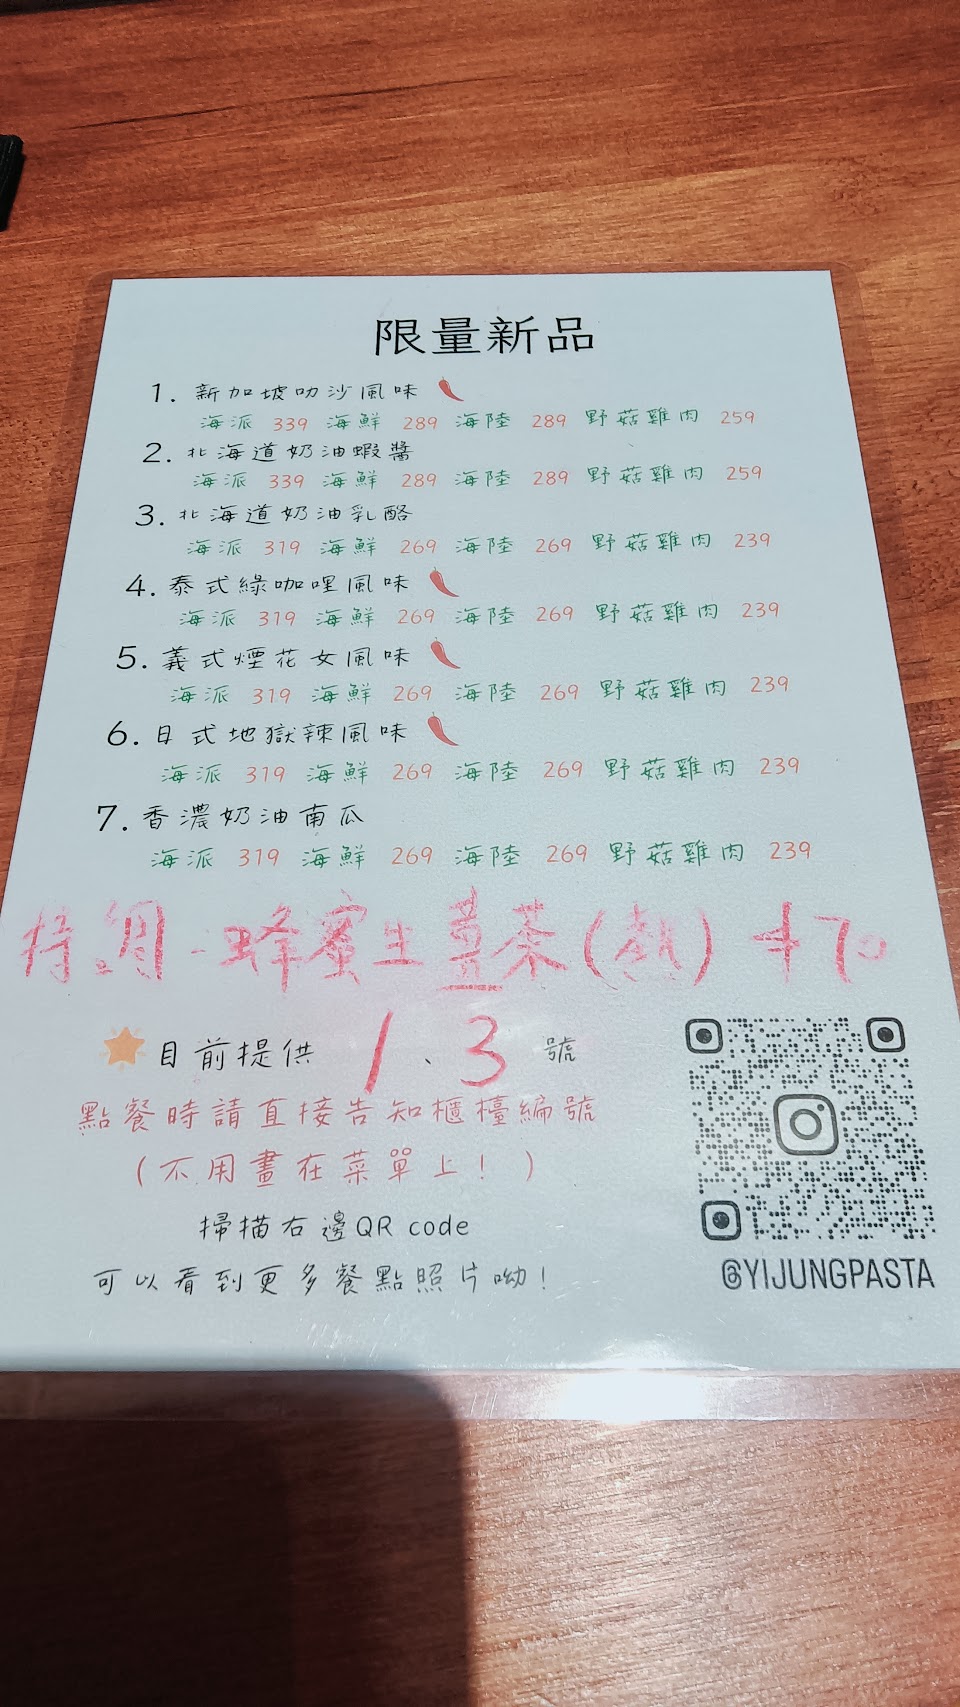 限量新品
1. 新加坡叻沙風味
海派 339 海鮮 289 海陸 289 野菇雞肉 259
2. 北海道奶油蝦醬
海派 339 海鮮 289 海陸 289 野菇雞肉 259
3. 北海道奶油乳酪
海派 319 海鮮 269 海陸 269 野菇雞肉 239
4. 泰式綠咖哩風味
海派 319 海鮮 269 海陸 269 野菇雞肉 239
5. 義式煙花女風味
海派 319 海鮮 269 海陸 269 野菇雞肉 239
6. 日式地獄辣風味
海派 319 海鮮 269 海陸 269 野菇雞肉 239
7. 香濃奶油南瓜
海派 319 海鮮 269 海陸 269 野菇雞肉 239
蜂蜜生薑茶(熱) $70
目前提供 1、3 號
點餐時請直接告知櫃檯編號
(不用畫在菜單上!)
掃描右邊QR code
可以看到更多餐點照片呦!
@YIJUNGPASTA